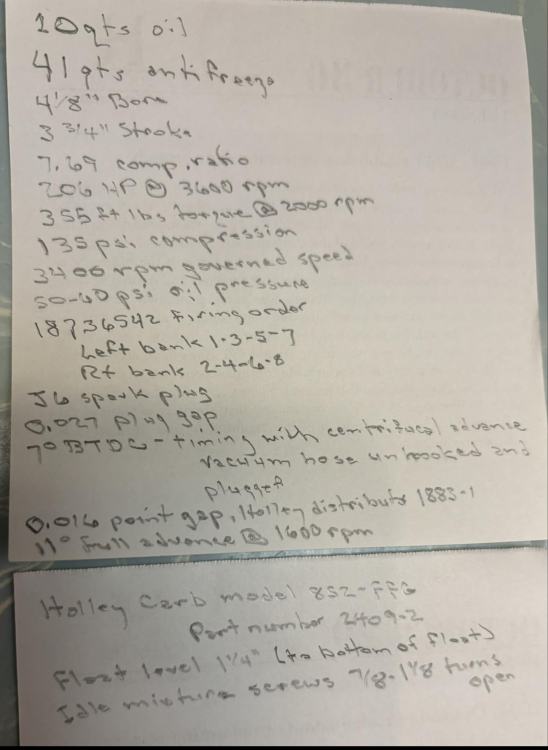 10qts oil
41 qts antifreeze
4 1/8" Bore
3 3/4" Stroke
7.69 comp. ratio
206 HP @ 3600 rpm
355 ft lbs torque @ 2000 rpm
135 psi compression
3400 rpm governed speed
50-60 psi oil pressure
18736542 firing order
Left bank 1-3-5-7
Rt bank 2-4-6-8
J6 spark plug
0.027 plug gap
7° BTDC - timing with centrifucal advance
vacuum hose unhooked and
plugged
0.016 point gap, Holley distributr 1883-1
11° full advance @ 1600 rpm
Holley Carb model 852-FFG
Part number 2409-2
Float level 1 1/4" (to bottom of float)
Idle mixture screws 7/8-1 1/8 turns
open